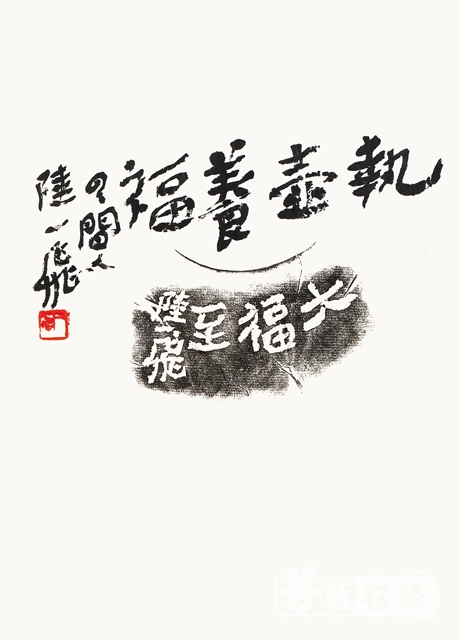 執壺養福
間人
陸一飛
大福至
陸一飛
菩薩在綫